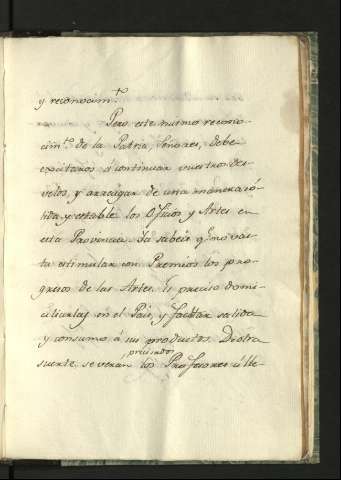 y reconocim.to
Pero este mismo recono-
cim.to de la Patria, Señores, debe
excitaros á continuar vuestros des-
velos, y arraigar de una manera só-
lida y estable los Oficios y Artes en
esta Provincia. Ya sabeis q.e no vas-
ta estimular con Premios los pro-
gresos de las Artes. Es preciso domi-
ciliarlas en el Pais, y facilitar salida
y consumo á sus productos. De otra
precisados
suerte se veran los Profesores á lle-